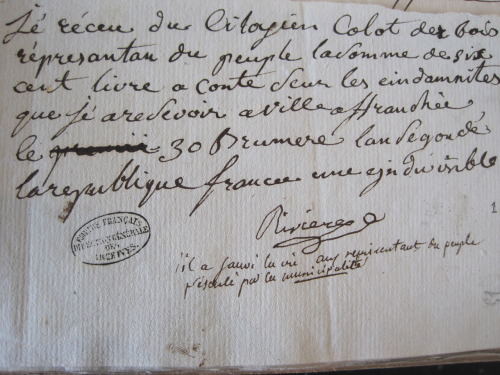 Jé réceu du Citogien Colot der bois
réprésantan du peuple la somme de six
cent livre a conte seur les eindamnites
que jé a resevoir a ville affranchie
le 30 Brumere lan segon dé
la republique francee une ejndivisible
Riviere
il a sauvé la vie aux représentant du peuple
par la municipalité
EMPIRE FRANÇAIS
DIRECTION GÉNÉRALE
DES
ARCHIVES.
1